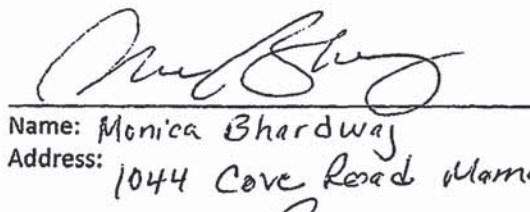 Name: Monica Bhardwaj
Address: 1044 Cove Road Mama